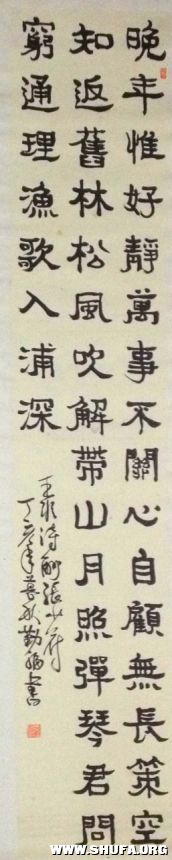 晚年惟好靜萬事不關心自顧無長策空
知返舊林松風吹解帶山月照彈琴君問
窮通理漁歌入浦深
王維詩酬張少府
丁亥年暮秋勤書
WWW.SHUFA.ORG